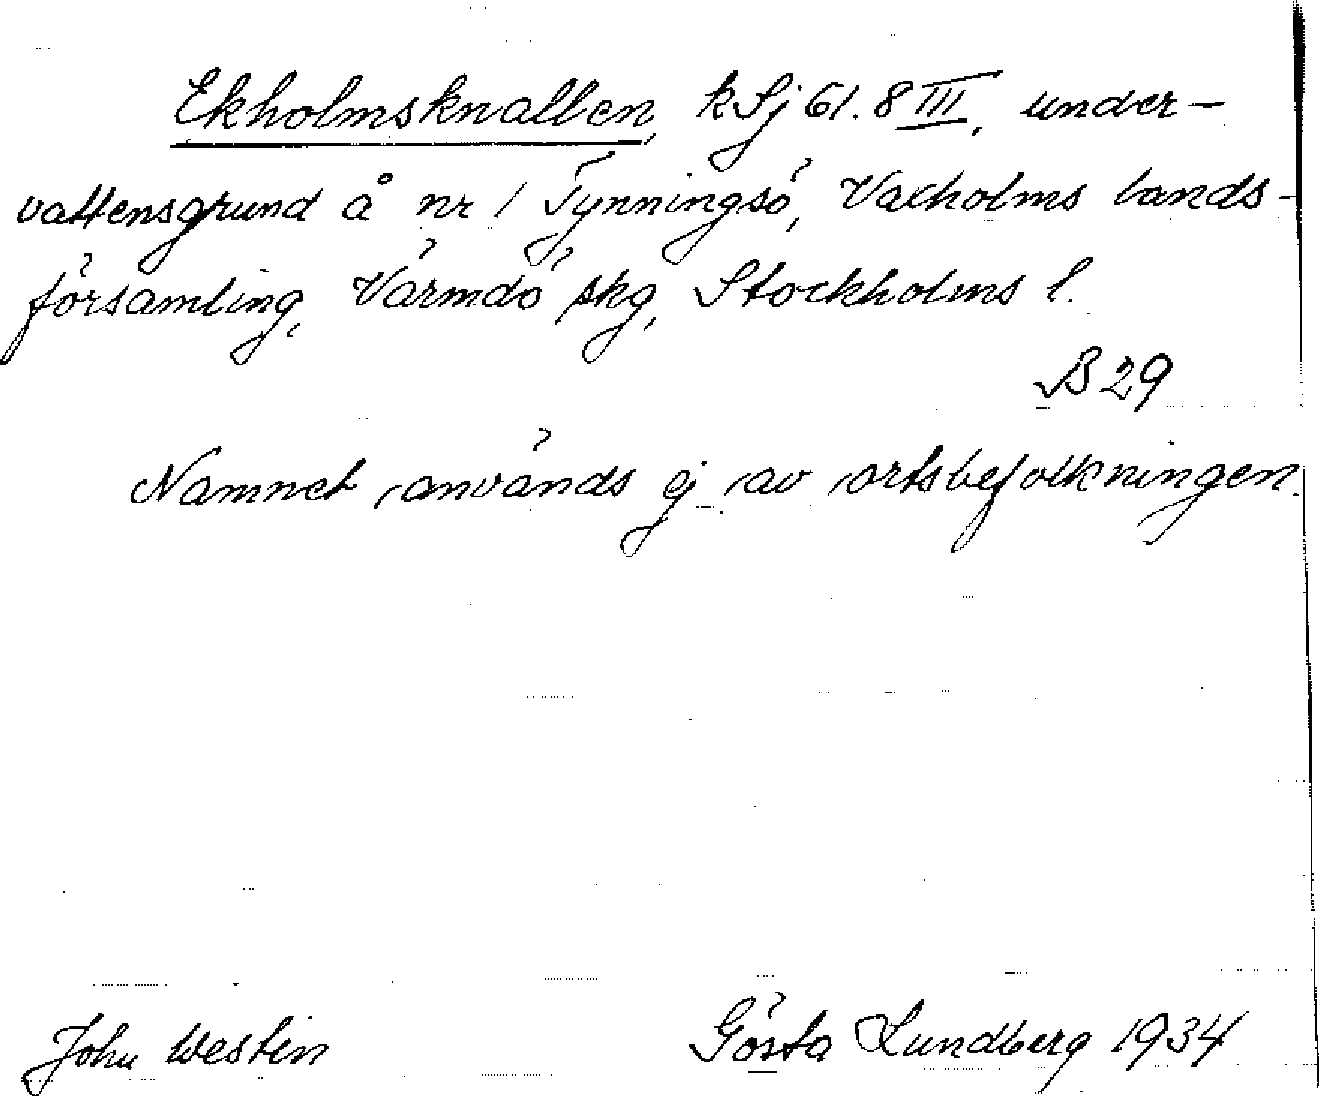 Ekholmsknallen, kSj 61.8 III, under-
vattensgrund å nr 1 Tynningsö, Vaxholms lands-
församling, Värmdö skg, Stockholms l.
B 29
Namnet används ej av ortsbefolkningen.
John Westin Gösta Lundberg 1934